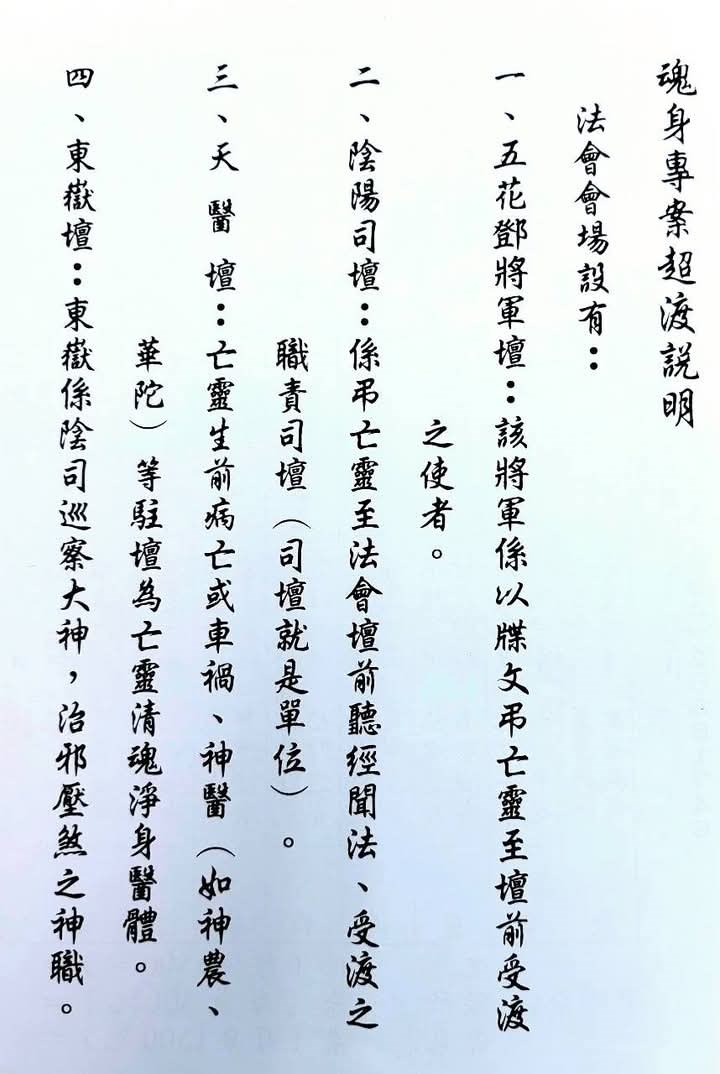 魂身專案超渡説明
法會會場設有：
一、五花鄧將軍壇：該將軍係以牒文弔亡靈至壇前受渡
之使者。
二、陰陽司壇：係弔亡靈至法會壇前聽經聞法、受渡之
職責司壇（司壇就是單位）。
三、天醫壇：亡靈生前病亡或車禍、神醫（如神農、
華陀）等駐壇為亡靈清魂淨身醫體。
四、東嶽壇：東嶽係陰司巡察大神，治邪壓煞之神職。